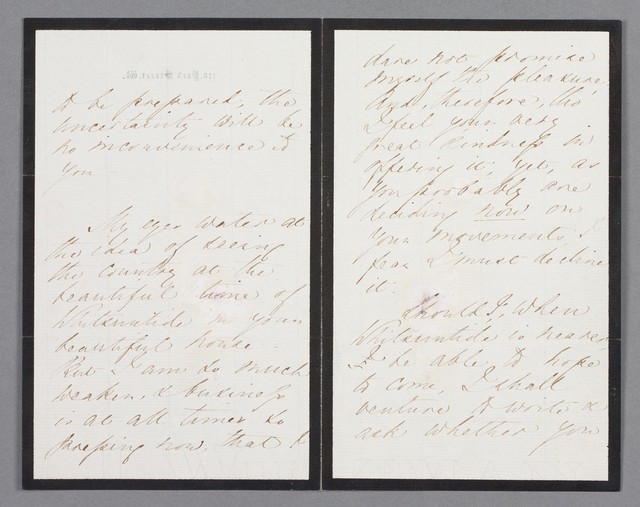 to be prepared, the
uncertainty will be
no inconvenience to
you
My eyes water at
the idea of seeing
the country at the
beautiful time of
Whitsuntide in your
beautiful house -
But I am so much
weaker, & business
is at all times so
pressing now, that I
dare not promise
myself the pleasure.
And, therefore, tho'
I feel your very
great kindness in
offering it, yet, as
you probably are
deciding now on
your movements, I
fear I must decline
it.
Should I, when
Whitsuntide is nearer,
be able to hope
to come, I shall
venture to write &
ask whether you